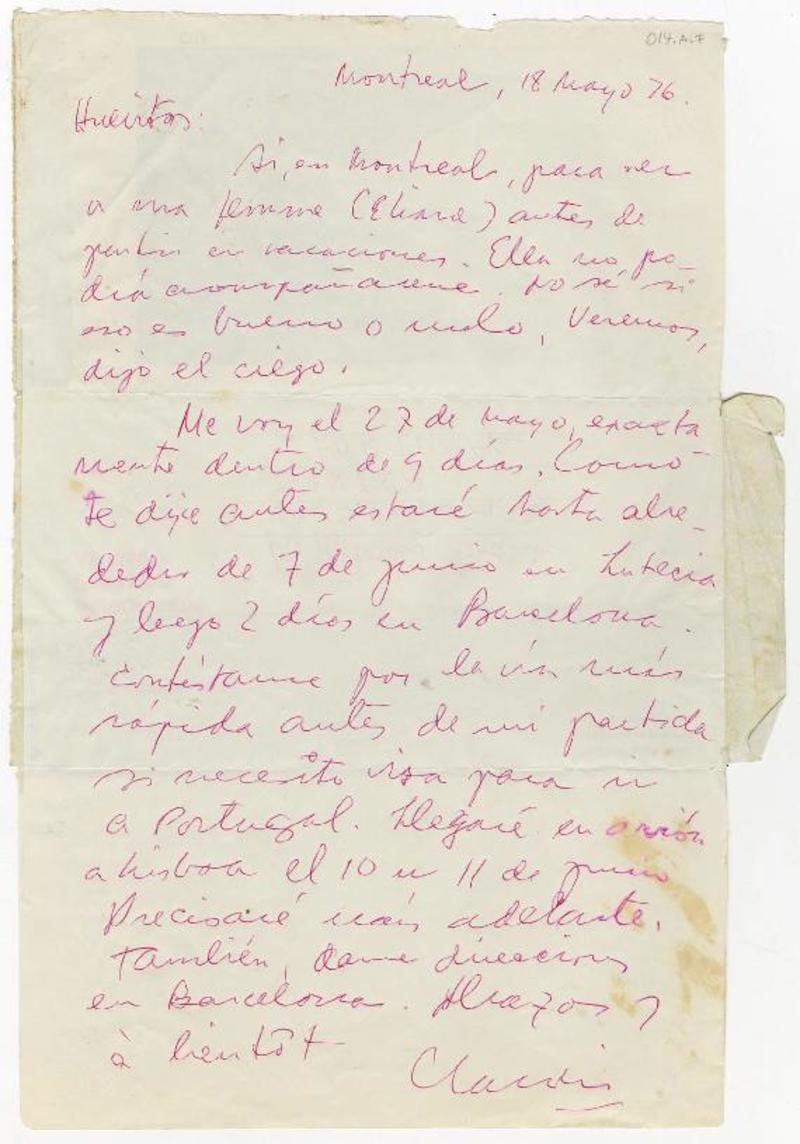 014.A.7
Montreal, 18 Mayo 76.
Sí, en Montreal, para ver
a ma femme (Eliane) antes de
partir en vacaciones. Ella no po-
drá acompañarme. No sé si
eso es bueno o malo, Veremos,
dijo el ciego.
Me voy el 27 de mayo, exacta
mente dentro de 9 días. Como
te dije antes estaré hasta alre-
dedor de 7 de junio en Lutecia
y luego 2 días en Barcelona.
contéstame por la vía más
rápida antes de mi partida
si necesito visa para ir
a Portugal. Llegaré en avión
a Lisboa el 10 u 11 de junio
Precisaré más adelante.
También, dame direcciones
en Barcelona. Abrazos y
à bientôt